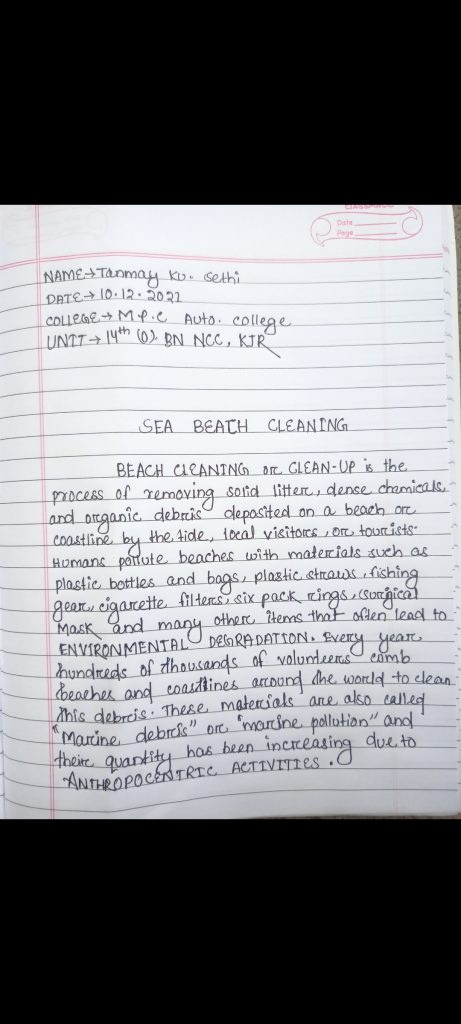 CLASSMATE
Date
Page
NAME→Tanmay Ku. Sethi
DATE→ 10.12.2022
COLLEGE→ M P.C Auto. college
UNIT→ 14th (O). BN NCC, KJR
SEA BEACH CLEANING
BEACH CLEANING or CLEAN-UP is the
process of removing solid litter, dense chemicals,
and organic debris deposited on a beach or
coastline by the tide, local visitors, or tourists.
Humans pollute beaches with materials such as
plastic bottles and bags, plastic straws, fishing
gear, cigarette filters, six pack rings, surgical
Mask and many other items that often lead to
ENVIRONMENTAL DEGRADATION. Every year,
hundreds of thousands of volunteers comb
beaches and coastlines around the world to clean
this debris. These materials are also called
"Marine debris" or "marine pollution" and
their quantity has been increasing due to
ANTHROPOCENTRIC ACTIVITIES.